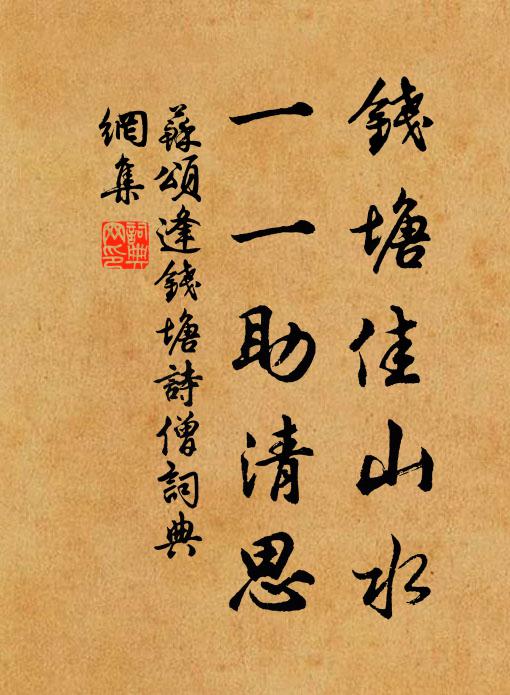 錢塘佳山水
一一助清思
蘇頌逢錢塘詩僧詞典
網集
詞典
网印